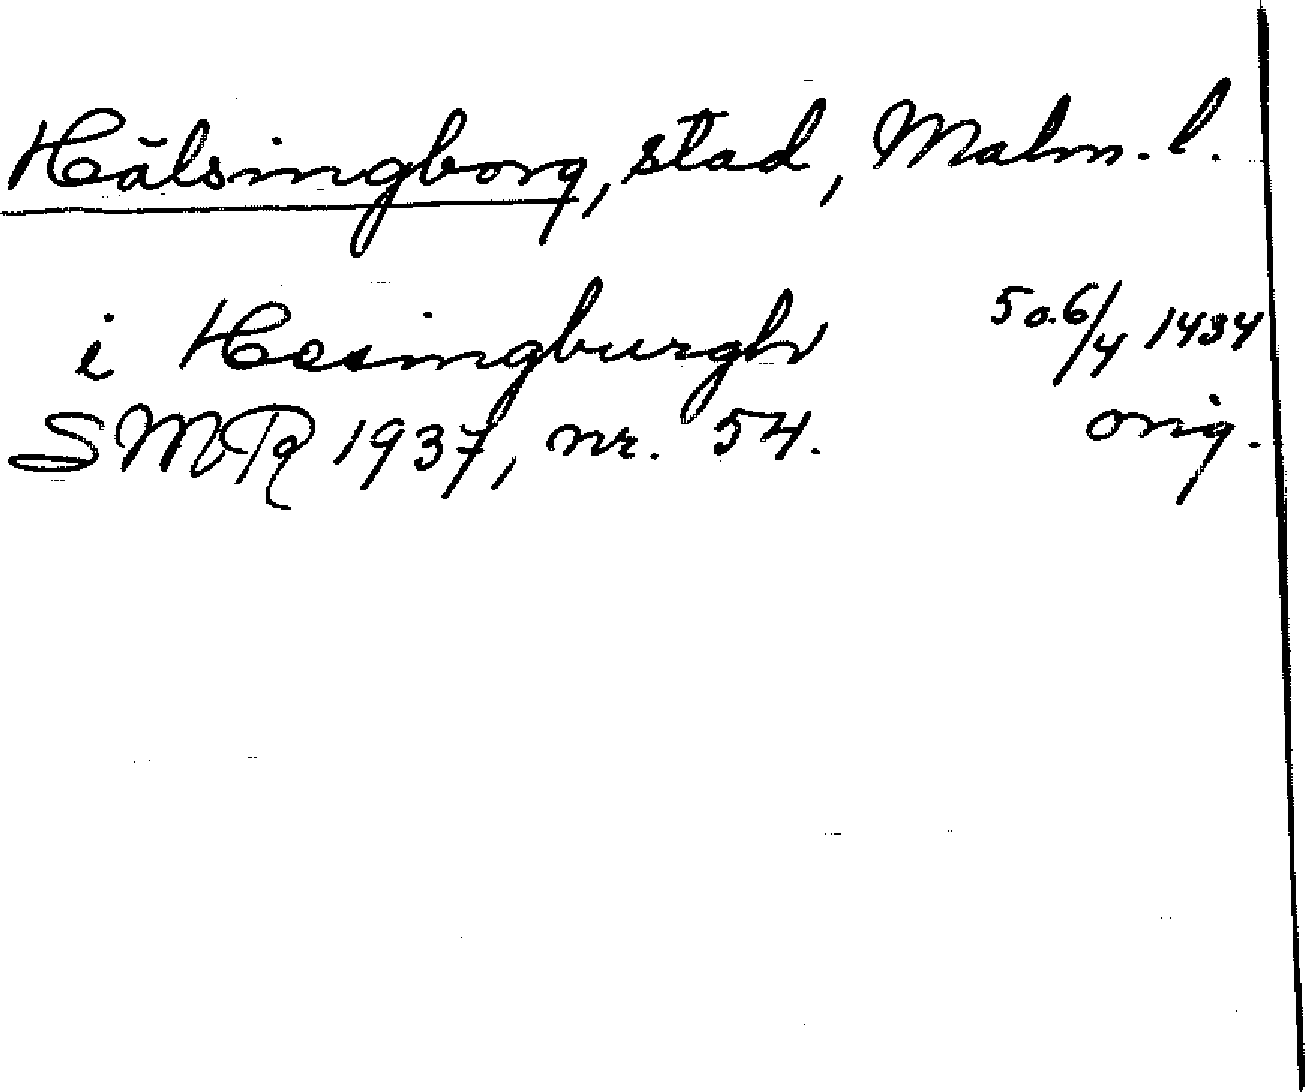 Hälsingborg, stad, Malm. l.
i Hesingburgh 5 o. 6/4 1434
SMR 1937, nr. 54. orig.